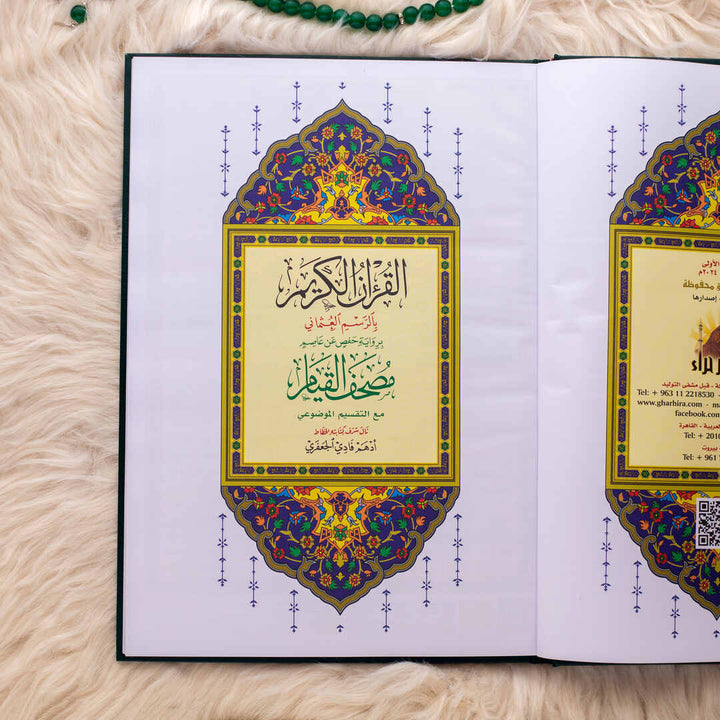 القرءان الكريم
بالرسم العثماني
برواية حفص عن عاصم
مصحف القيام
مع التقسيم الموضوعي
نال شرف كتابته الخطاط
أدهم فادي الجعفري
الأولى
٢٠٢٤م
محفوظة
إصدارها
حراء
قبل مشفى التوليد
Tel: + 963 11 2218530 -
www.gharhira.com - ma
facebook.com
العربية - القاهرة
Tel: + 2010
بيروت
Tel: + 961